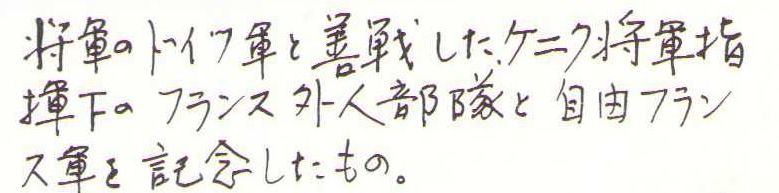 将軍のドイツ軍と善戦した、ケニク将軍指
揮下の フランス外人部隊と自由フラン
ス軍を記念したもの。